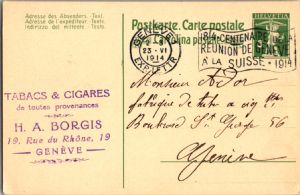 Adresse des Absenders. - Text.
Adresse de l'expéditeur. - Texte.
Indirizzo del mittente. - Testo.
Postkarte. Carte postale
lina p
HELVETIA
GENÈVE
23.
1914
EXP. LETTR.
CENTENAIRE
RÉUNION DE GENÈVE
À LA SUISSE 1914
TABACS & CIGARES
de toutes provenances
H. A. BORGIS
19, Rue du Rhône, 19
GENÈVE
Monsieur
fabrique de
Boulevard St George 56
Genève